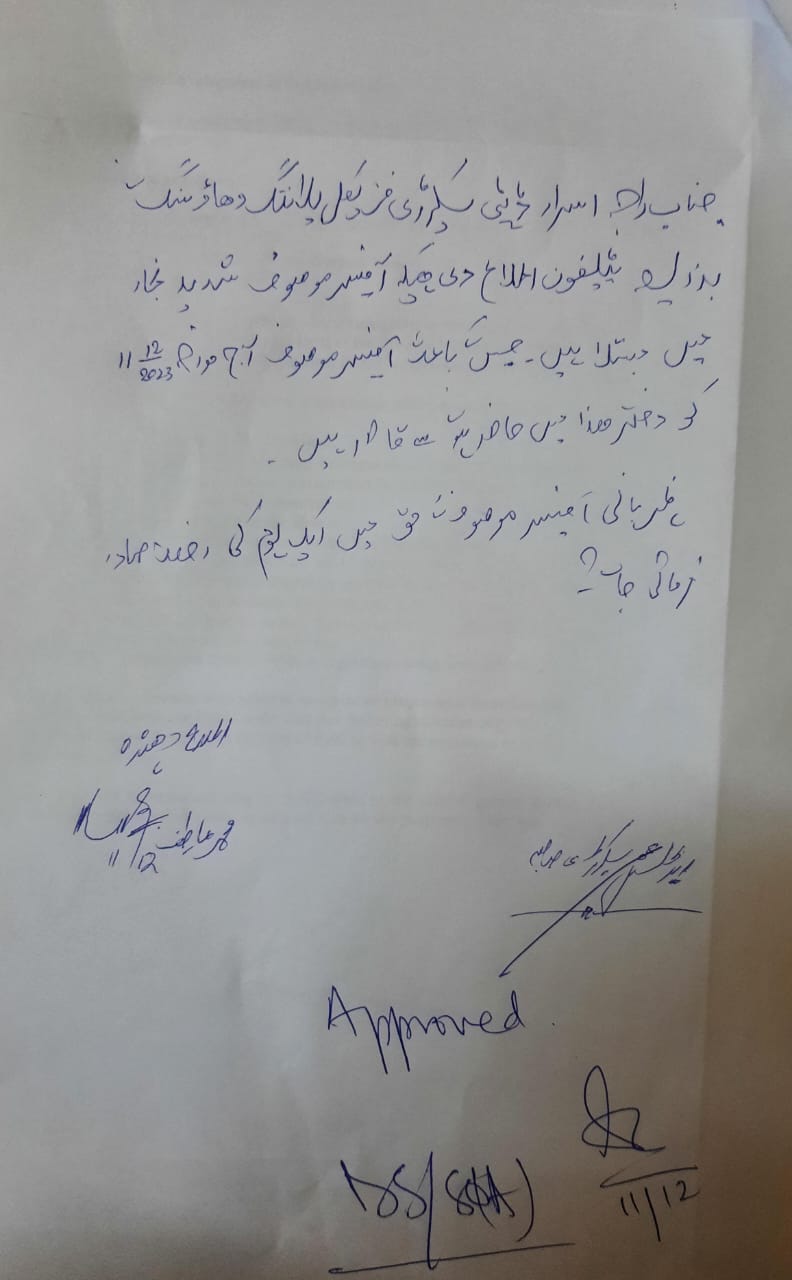 جناب راجہ اسرار ڈپٹی سیکرٹری فزیکل پلاننگ و ہاؤسنگ نے
بذریعہ ٹیلیفون اطلاع دی ہیکہ آفیسر موصوف شدید بخار
میں مبتلا ہیں۔ جس کے باعث آفیسر موصوف آج مورخہ 11 12/2023
کو دفتر ھذا میں حاضر ہونے سے قاصر ہیں۔
مہربانی آفیسر موصوف کے حق میں ایک یوم کی رخصت صادر
فرمائی جائے۔
اطلاع دھندہ
محمد عارف
11/12
ایڈیشنل سیکرٹری صاحب
Approved.
DS/S(A)
11/12